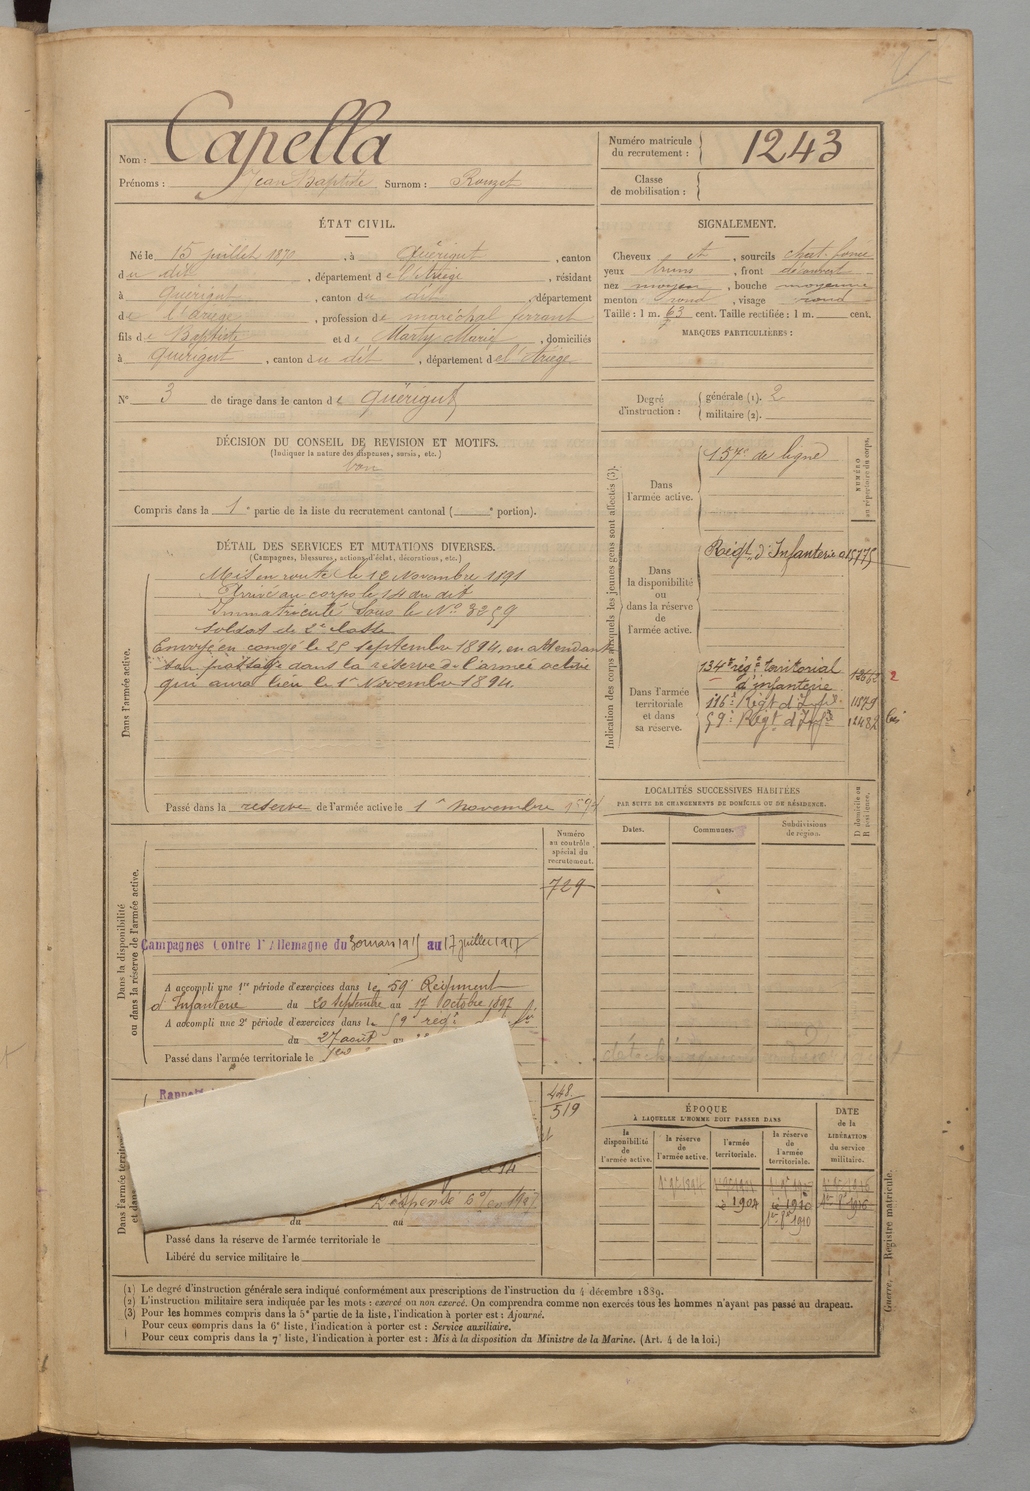 Nom : Capella
Prénoms : Jean Baptiste Surnom : Rouzet
Numéro matricule du recrutement : 1243
Classe de mobilisation :
ÉTAT CIVIL.
Né le 15 juillet 1870, à Quérigut, canton
du dit, département de l'Ariège, résidant
à Quérigut, canton du dit, département
de l'Ariège, profession de maréchal ferrant
fils de Baptiste et de Marty Marie, domiciliés
à Quérigut, canton du dit, département de l'Ariège.
N° 3 de tirage dans le canton de Quérigut
SIGNALEMENT.
Cheveux et, sourcils chat. foncé
yeux bruns, front découvert
nez moyen, bouche moyenne
menton rond, visage rond
Taille : 1 m. 63 cent. Taille rectifiée : 1 m. cent.
MARQUES PARTICULIÈRES :
Degré d'instruction : générale (1). 2
militaire (2).
DÉCISION DU CONSEIL DE REVISION ET MOTIFS.
(Indiquer la nature des dispenses, sursis, etc.)
bon
Compris dans la 1e partie de la liste du recrutement cantonal ( e portion).
DÉTAIL DES SERVICES ET MUTATIONS DIVERSES.
(Campagnes, blessures, actions d'éclat, décorations, etc.)
Dans l'armée active.
Mis en route le 12 Novembre 1891
Arrivé au corps le 14 du dit
Immatriculé sous le N° 3259
soldat de 2e classe
Envoyé en congé le 25 septembre 1894, en attendant
son passage dans la réserve de l'armée active
qui aura lieu le 1er Novembre 1894.
Passé dans la réserve de l'armée active le 1er Novembre 1894
Indication des corps auxquels les jeunes gens sont affectés (3).
NUMÉRO au répertoire du corps.
Dans l'armée active.
157e de ligne
Dans la disponibilité ou dans la réserve de l'armée active.
Régt d'Infanterie 15775
Dans l'armée territoriale et dans sa réserve.
134e rég. territorial
d'infanterie
116e Régt d'Inf.
59e Régt d'Inf. 12482 bis
LOCALITÉS SUCCESSIVES HABITÉES
PAR SUITE DE CHANGEMENTS DE DOMICILE OU DE RÉSIDENCE.
Dates. Communes. Subdivisions de région. D domicile ou R résidence.
Dans la disponibilité ou dans la réserve de l'armée active.
Numéro au contrôle spécial du recrutement.
729
Campagnes Contre l'Allemagne du 30 mars 1915 au 17 juillet 1917
A accompli une 1re période d'exercices dans le 59e Régiment
d'Infanterie du 20 septembre au 17 Octobre 1897
A accompli une 2e période d'exercices dans le 59e régt
du 27 août au
Passé dans l'armée territoriale le
448.
519
Dans l'armée territ
du au
Passé dans la réserve de l'armée territoriale le
Libéré du service militaire le
ÉPOQUE
À LAQUELLE L'HOMME DOIT PASSER DANS
la disponibilité de l'armée active.
la réserve de l'armée active.
l'armée territoriale.
la réserve de l'armée territoriale.
DATE de la LIBÉRATION du service militaire.
1904 1910 1916
1er 8bre 1910
Guerre. — Registre matricule.
(1) Le degré d'instruction générale sera indiqué conformément aux prescriptions de l'instruction du 4 décembre 1889.
(2) L'instruction militaire sera indiquée par les mots : exercé ou non exercé. On comprendra comme non exercés tous les hommes n'ayant pas passé au drapeau.
(3) Pour les hommes compris dans la 5e partie de la liste, l'indication à porter est : Ajourné.
Pour ceux compris dans la 6e liste, l'indication à porter est : Service auxiliaire.
Pour ceux compris dans la 7e liste, l'indication à porter est : Mis à la disposition du Ministre de la Marine. (Art. 4 de la loi.)